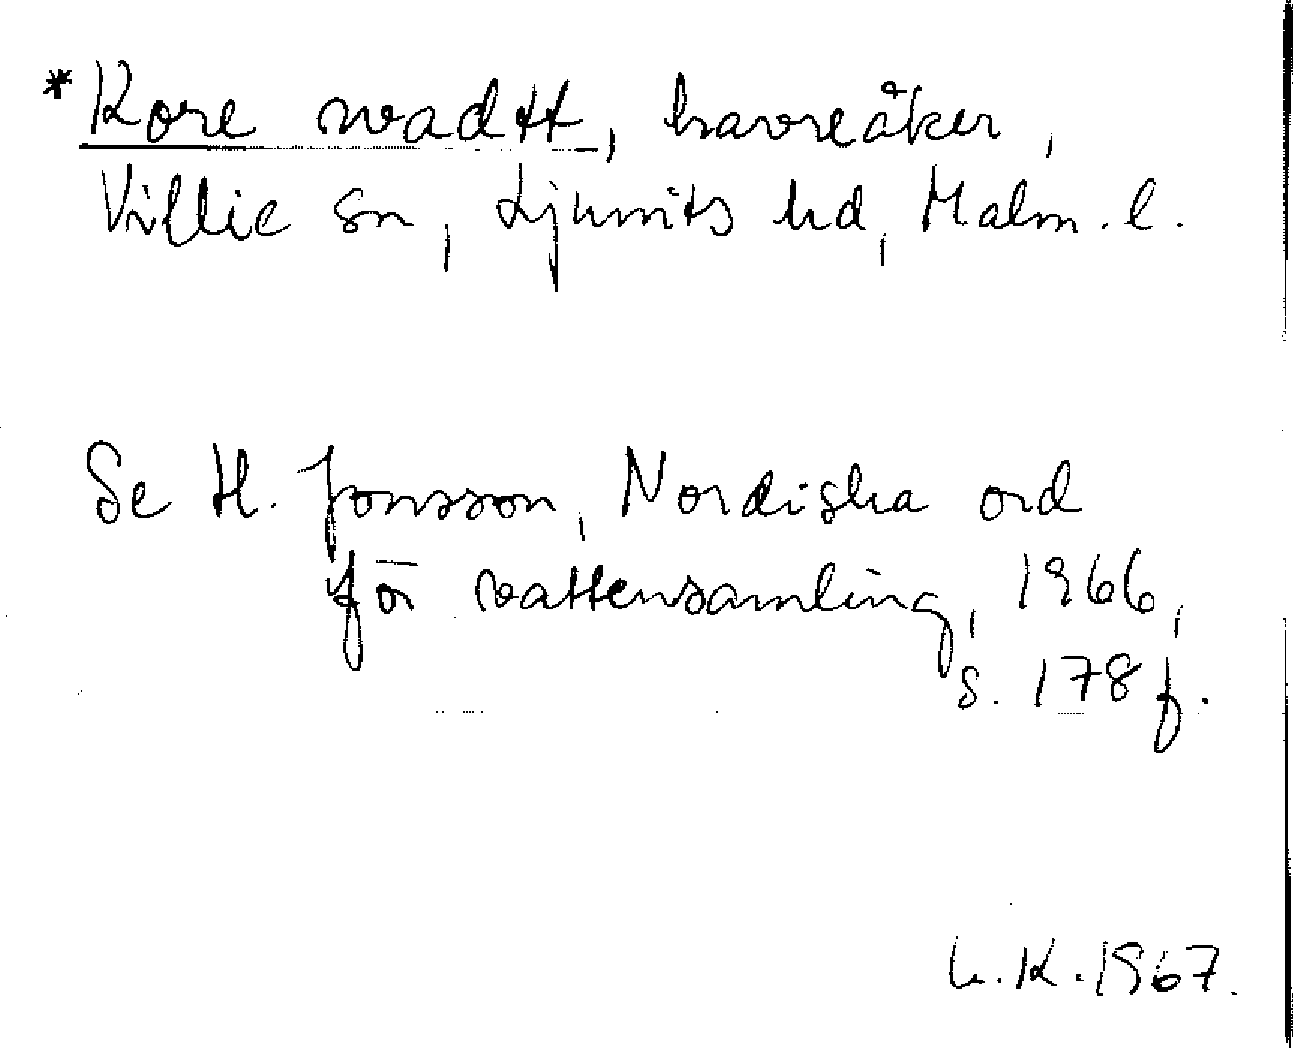 *Kore wadtt, havreåker,
Villie sn, Ljunits hd, Malm. l.
Se H. Jonsson, Nordiska ord
för vattensamling, 1966,
s. 178 f.
L.K. 1967.